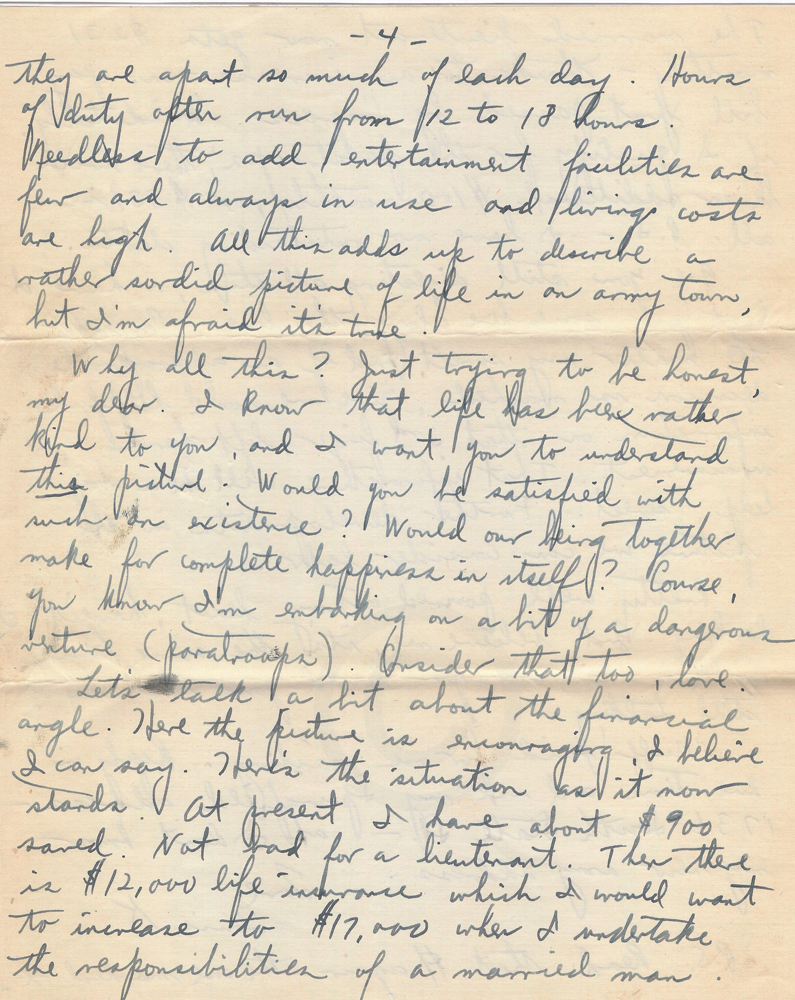 - 4 -
they are apart so much of each day. Hours
of duty often run from 12 to 18 hours.
Needless to add entertainment facilities are
few and always in use and living costs
are high. All this adds up to describe a
rather sordid picture of life in an army town,
but I'm afraid it's true.
Why all this? Just trying to be honest,
my dear. I know that life has been rather
kind to you, and I want you to understand
this picture. Would you be satisfied with
such an existence? Would our being together
make for complete happiness in itself? Course,
you know I'm embarking on a bit of a dangerous
venture (paratroops). Consider that too, love.
Let's talk a bit about the financial
angle. Here the picture is encouraging, I believe
I can say. Here's the situation as it now
stands. At present I have about $900
saved. Not bad for a lieutenant. Then there
is $12,000 life insurance which I would want
to increase to $17,000 when I undertake
the responsibilities of a married man.